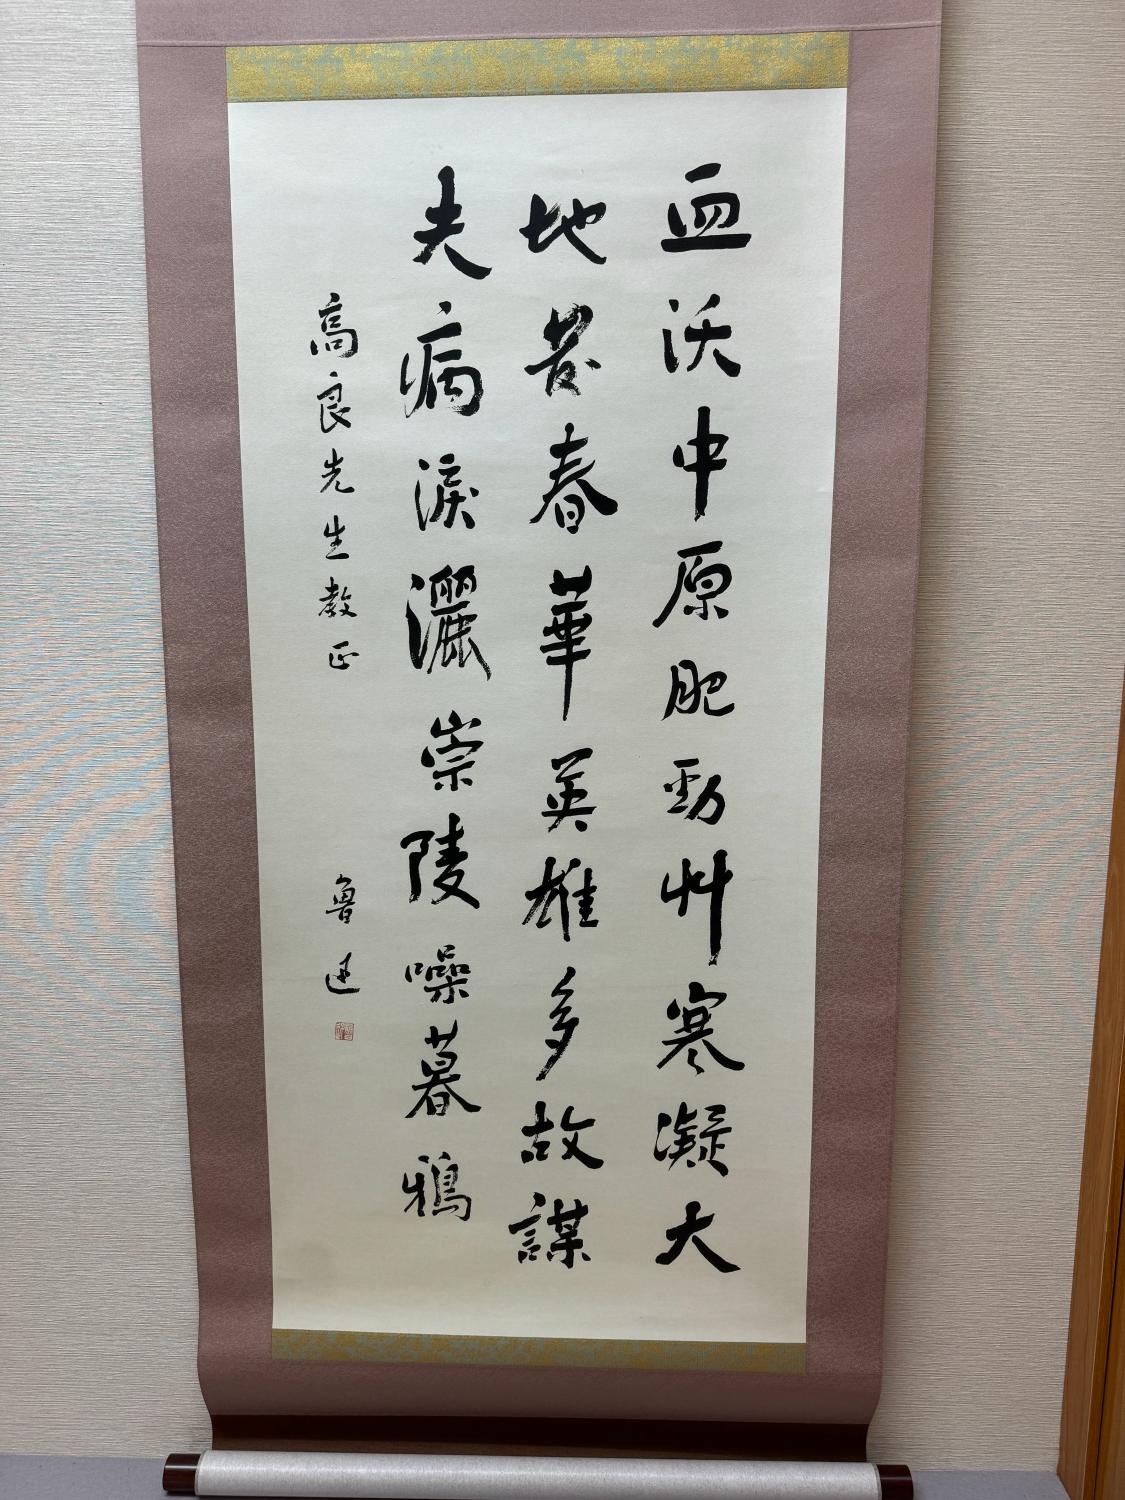 血沃中原肥勁艸寒凝大
地發春華英雄多故謀
夫病淚灑崇陵噪暮鴉
高良先生教正
魯迅